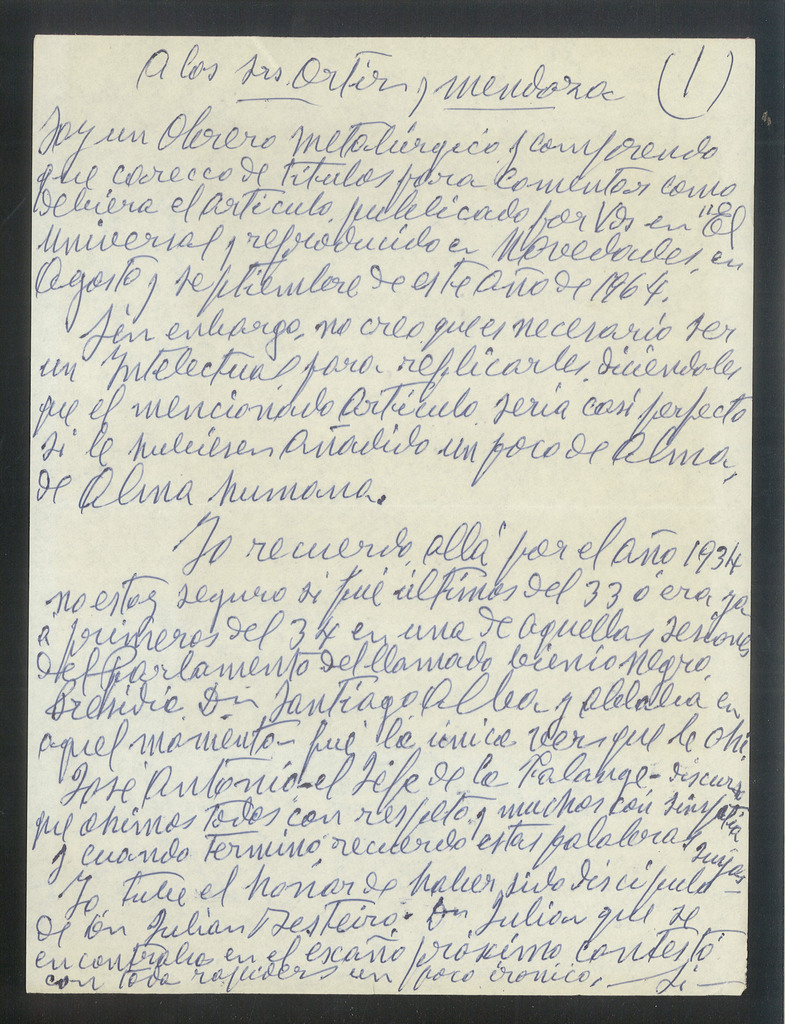 A los srs Ortiz y Mendoza (1)
Soy un Obrero Metalúrgico y comprendo
que carecco de titulos para comentar como
debiera el articulo, publicado por Vds en "El
Universal y reproducido en Novedades, en
Agosto y septiembre de este año de 1964.
Sin enbargo, no creo que es necesario ser
un Intelectual para replicarles, diciendoles
que el mencionado articulo, seria casi perfecto
si le hubiesen añadido un poco de alma,
de alma humana.
Yo recuerdo, allá por el año 1934
no estoy seguro si fué últimos del 33 ó era ya
a primeros del 34 en una de aquellas sesiones
del Parlamento del llamado bienio negro,
Presidia Dn Santiago Alba y hablaba en
aquel momento - fué la única vez que le ohi
José Antonio - el Jefe de la Falange - discurso
que ohimos todos con respeto y muchos con simpatia
y cuando terminó, recuerdo estas palabras suyas -
Yo, tube el honor de haber sido discipulo
de Dn Julian Besteiro - Dn Julian que se
encontraba en el escaño próximo, contestó
con toda rapiders un poco ironico, - Si -